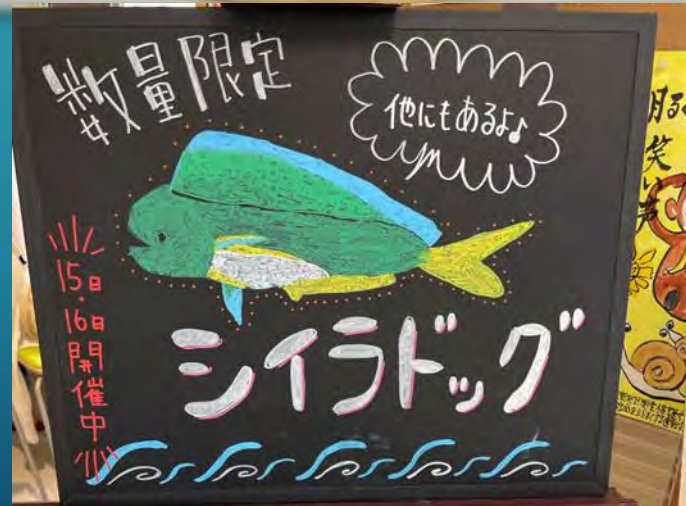 数量限定
他にもあるよ♪
15日・16日開催中
シイラドッグ
明る
笑い声